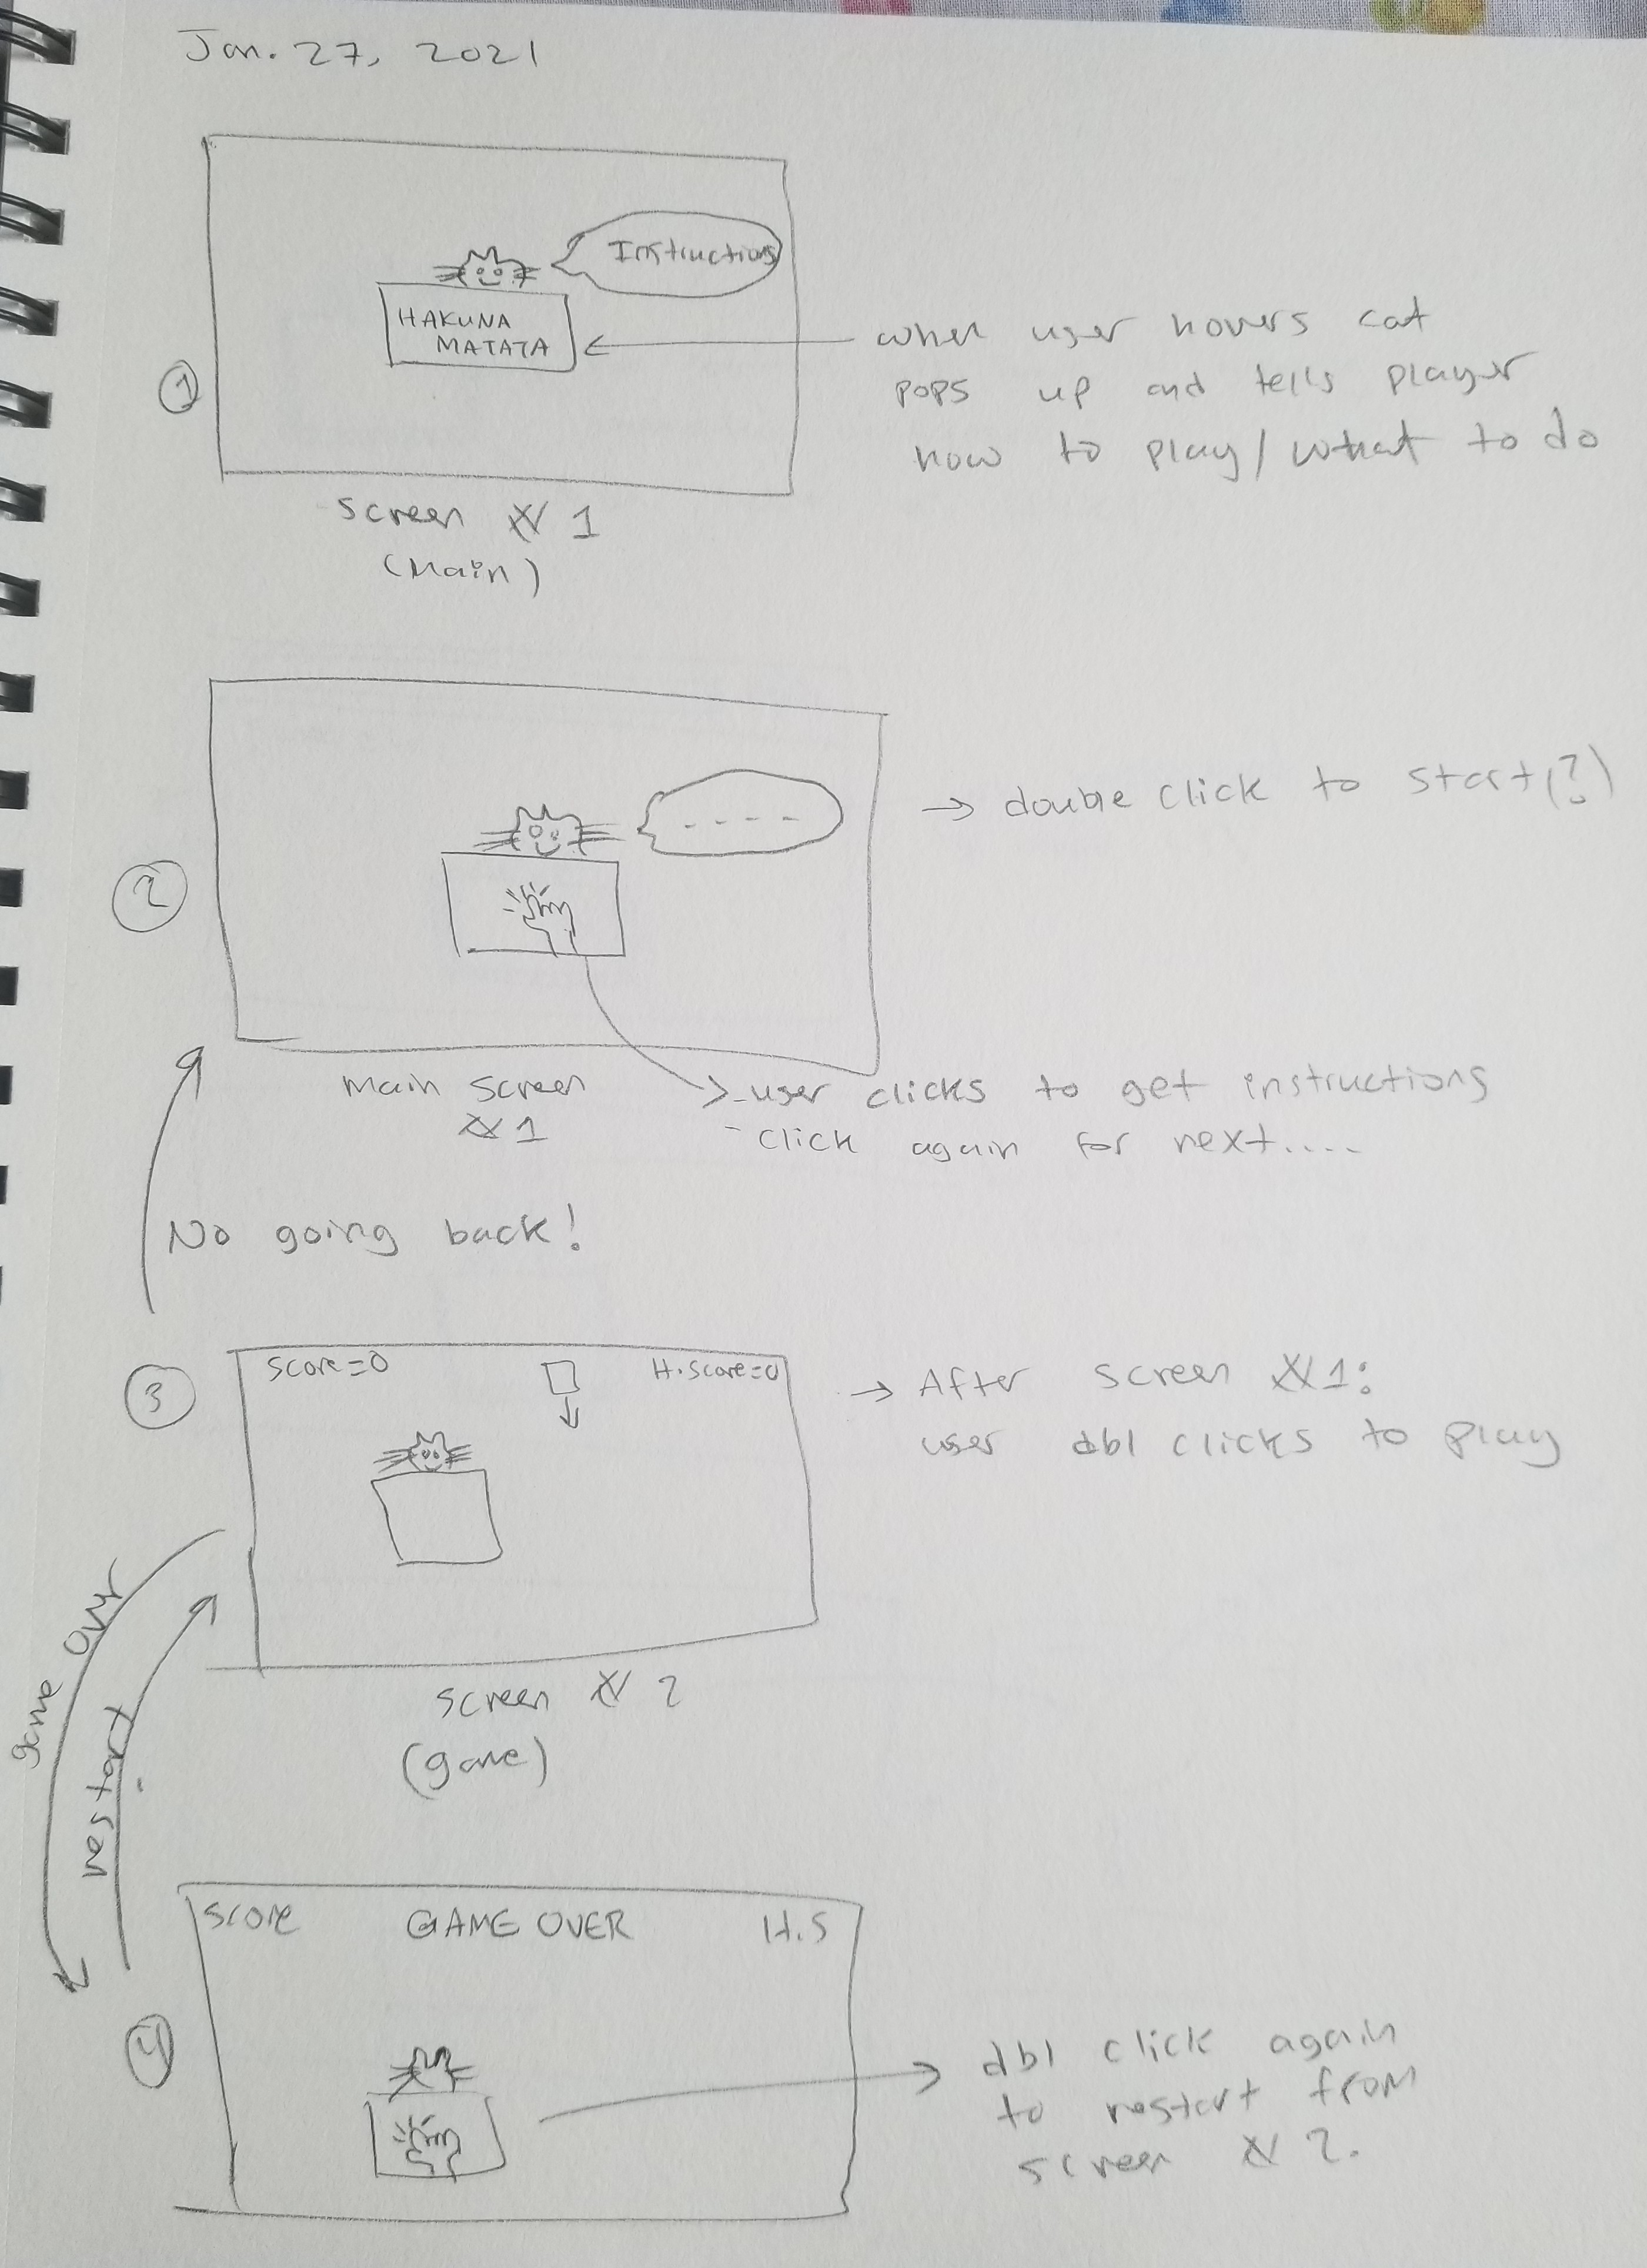 Jan. 27, 2021
Instructions
HAKUNA
MATATA
when user hovers cat
pops up and tells player
how to play/what to do
1
screen # 1
(Main)
----
→ double click to start(?)
2
Main screen
#1
-user clicks to get instructions
-click again for next....
No going back!
3
score=0
H.score=0
→ After screen #1:
user dbl clicks to play
game over
restart
screen # 2
(game)
score
GAME OVER
H.S
4
dbl click again
to restart from
screen # 2.